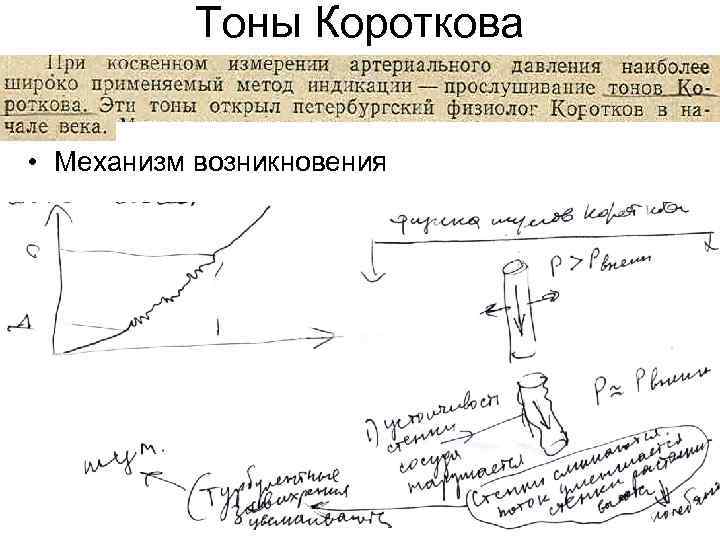 Тоны Короткова
При косвенном измерении артериального давления наиболее
широко применяемый метод индикации — прослушивание тонов Ко-
роткова. Эти тоны открыл петербургский физиолог Коротков в на-
чале века.
• Механизм возникновения
физика шумов Коротков
P > Pвнешн
С
Д
P ≈ Pвнешн
1) устойчивость
стенки
сосуда
нарушается
шум.
(Турбулентные
завихрения
увеличиваются
Стенки сминаются.
поток уменьшается
стенки